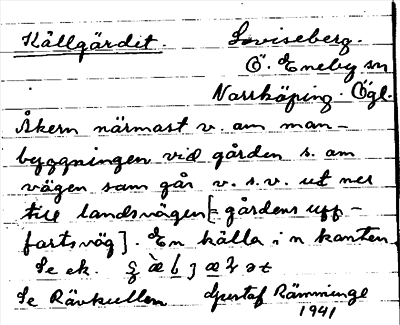 Källgärdet. Loviseberg.
Ö. Eneby sn
Norrköping. Ögl.
Åkern närmast v. om man-
byggningen vid gården s. om
vägen som går v. s. v. ut ner
till landsvägen [= gårdens upp-
fartsväg]. En källa i n kanten.
Se ek.
Se Rävkullen Gustaf Rämminge
1941